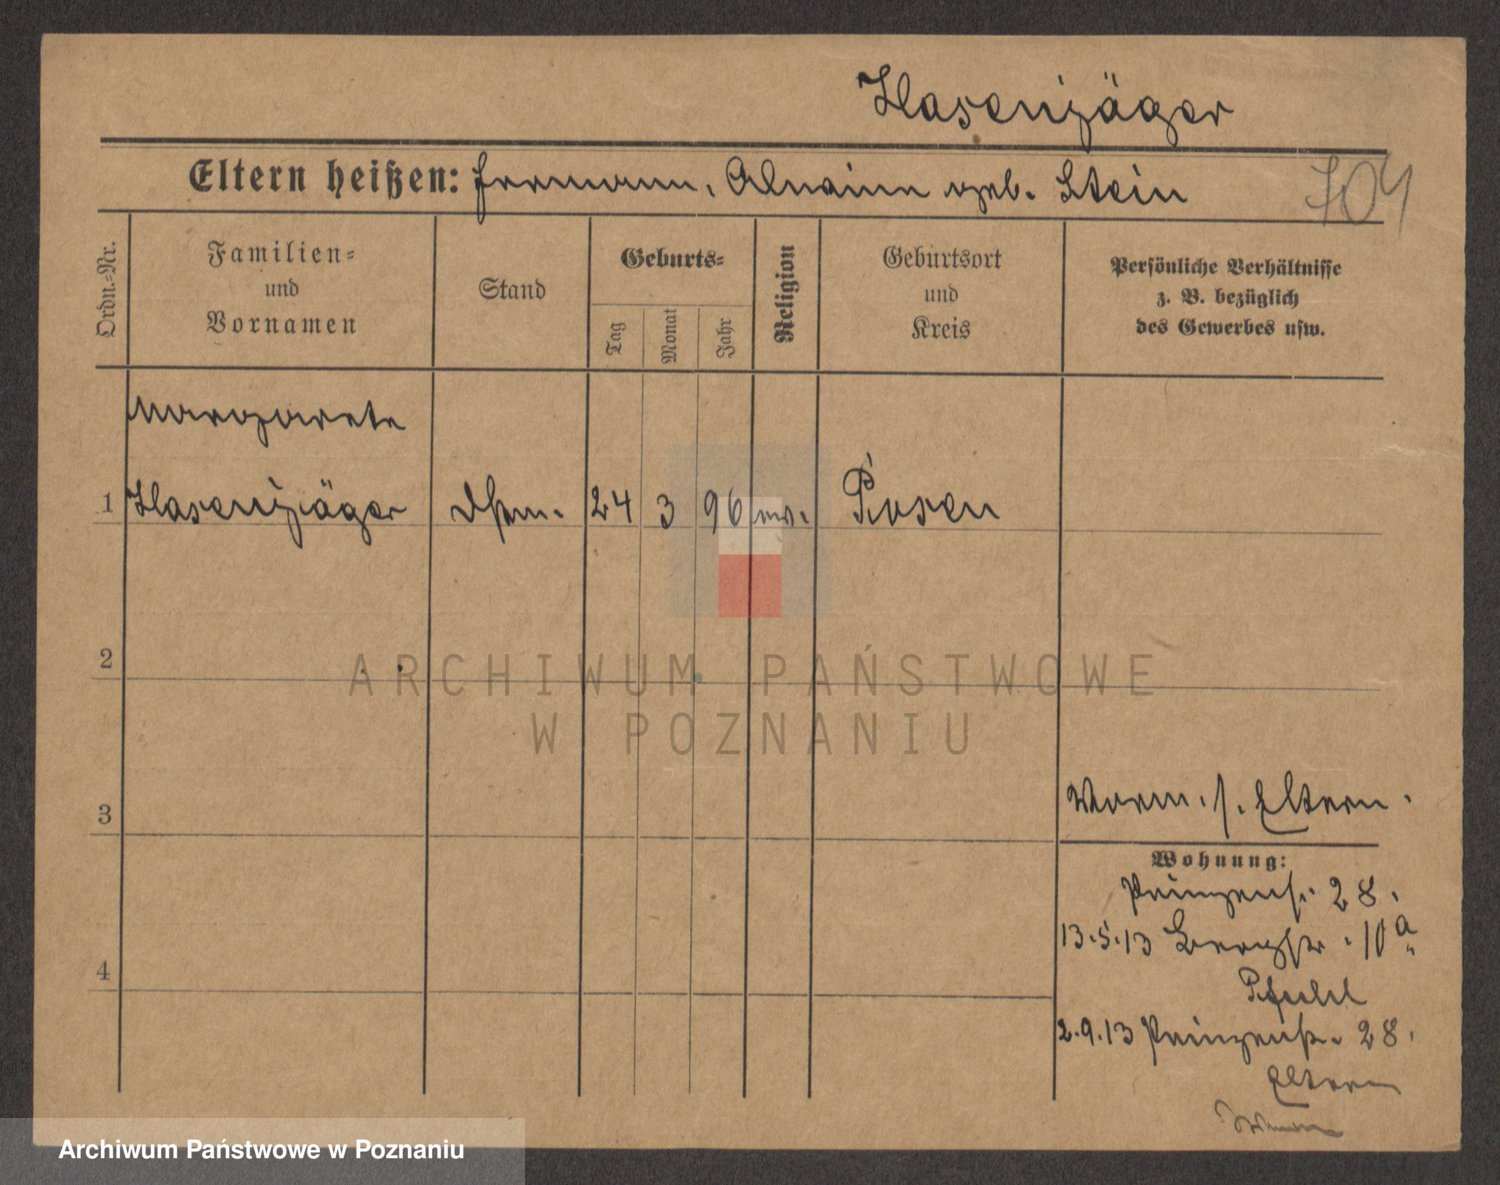 Hasenjäger
Eltern heißen: Hermann, Alwine geb. Stein
704
Ordn.-Nr.
Familien-
und
Vornamen
Stand
Geburts-
Tag
Monat
Jahr
Religion
Geburtsort
und
Kreis
Persönliche Verhältnisse
z. B. bezüglich
des Gewerbes usw.
Margarete
1 Hasenjäger 24 3 96 ev. Posen
2
ARCHIWUM PAŃSTWOWE
W POZNANIU
3
Vorm. s. Eltern.
Wohnung:
Prinzenst. 28.
13.5.13 Bergstr. 10a
4
2.9.13 Prinzenstr. 28.
Eltern
Archiwum Państwowe w Poznaniu